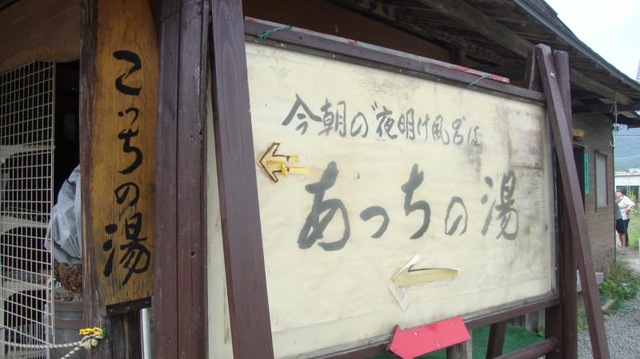 こっちの湯
今朝の"夜明け風呂は
あっちの湯